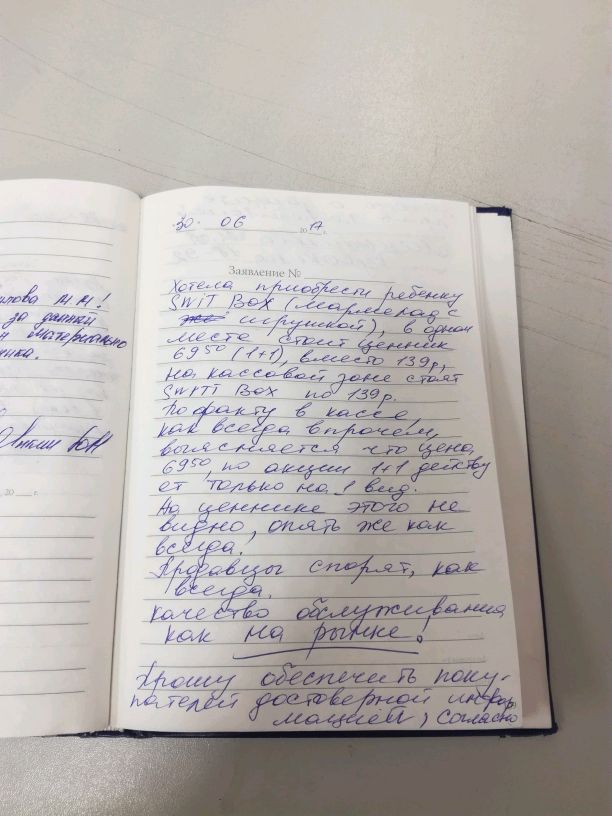 М.М!
за данный
материально
ника.
20 г.
30. 06 20 17 г.
Заявление №
Хотела приобрести ребенку
SWIT BOX (мармелад с
игрушкой), в одном
месте стоит ценник
69⁵⁰ (1+1), вместо 139р,
на кассовой зоне стоят
SWIT BOX по 139р.
По факту в кассе
как всегда впрочем,
выясняется что цена
69⁵⁰, по акции 1+1 действу
ет только на 1 вид.
На ценнике этого не
видно, опять же как
всегда!
Продавцы спорят, как
всегда.
Качество обслуживания
как на рынке!
Прошу обеспечить поку-
пателей достоверной инфор
мацией, согласно